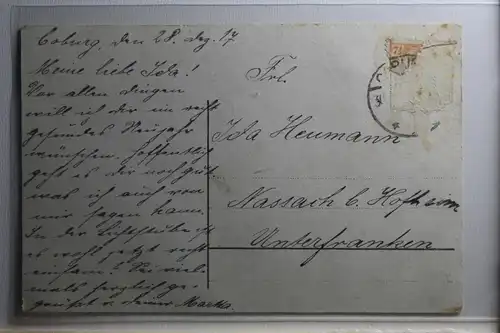 Coburg, den 28. Dez. 17
Meine liebe Ida!
Vor allen dingen
will ich dir ein recht
gesundes Neujahr
wünschen. Hoffentlich
geht es dir noch gut,
was ich auch von
mir sagen kann.
In der ist
es wohl jetzt recht
einsam? Sei viel-
mals herzlich ge-
grüßt v. deiner
Frl.
Ida Heumann
Nassach b. Hofheim
Unterfranken
7½